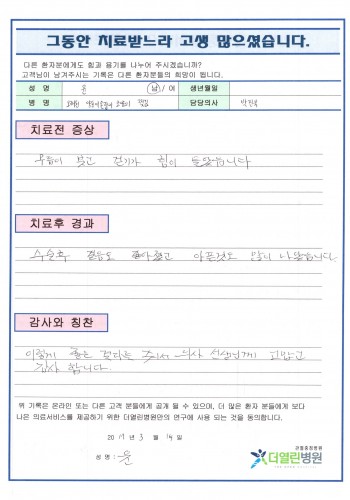 그동안 치료받느라 고생 많으셨습니다.
다른 환자분에게도 힘과 용기를 나누어 주시겠습니까?
고객님이 남겨주시는 기록은 다른 환자분들의 희망이 됩니다.
성 명 윤 남 / 여 생년월일
병 명 담당의사
치료전 증상
무릎이 붓고 걷기가 힘이 들었습니다
치료후 경과
수술후 걸음도 좋아졌고 아픈것도 많이 나았습니다.
감사와 칭찬
이렇게 좋은 주셔서 의사 선생님께 고맙고
감사 합니다.
위 기록은 온라인 또는 다른 고객 분들에게 공개 될 수 있으며, 더 많은 환자 분들에게 보다
나은 의료서비스를 제공하기 위한 더열린병원만의 연구에 사용 되는 것을 동의합니다.
2017 년 3 월 14 일
성 명 : 윤
관절중점병원
더열린병원